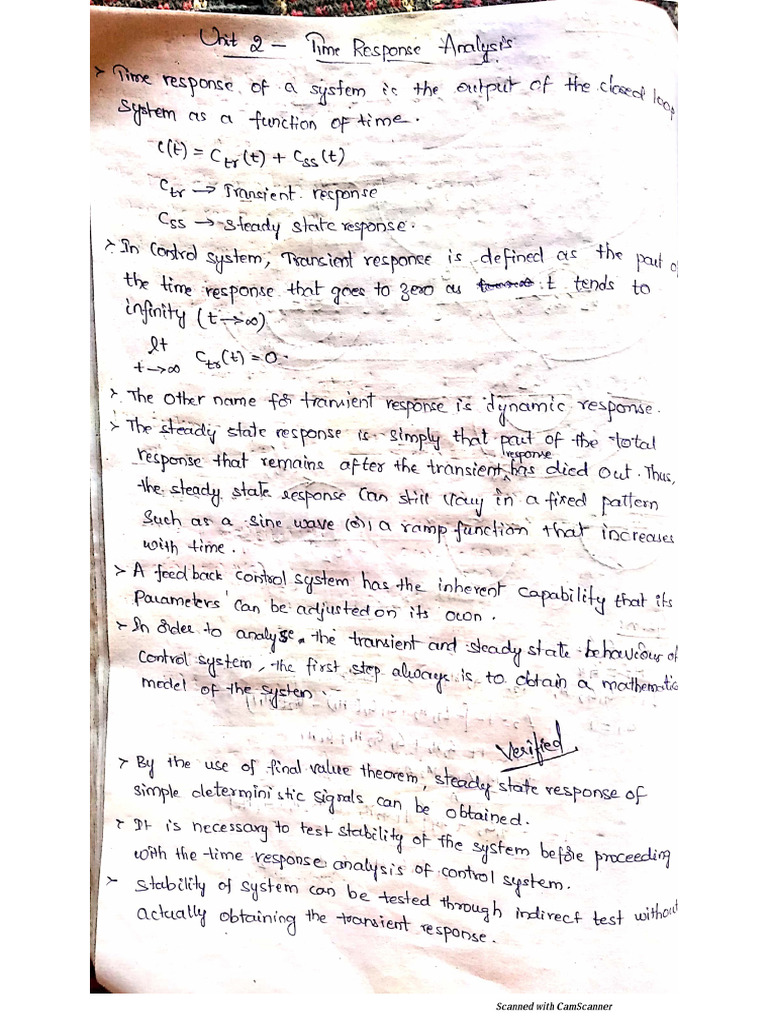 Unit 2 - Time Response Analysis
> Time response of a system is the output of the closed loop
system as a function of time.
c(t) = Ctr(t) + Css(t)
Ctr → Transient response
Css → steady state response.
> In control system, Transient response is defined as the part of
the time response that goes to zero as t tends to
infinity (t→∞)
lt
t→∞ Ctr(t) = 0.
> The other name for transient response is dynamic response.
> The steady state response is simply that part of the total
response
response that remains after the transient ^ has died out. Thus,
the steady state response can still vary in a fixed pattern
such as a sine wave (or) a ramp function that increases
with time.
> A feedback control system has the inherent capability that its
parameters can be adjusted on its own.
> In order to analyse, the transient and steady state behaviour of
control system, the first step always is to obtain a mathematic
model of the system.
Verified
> By the use of final value theorem, steady state response of
simple deterministic signals can be obtained.
> It is necessary to test stability of the system before proceeding
with the time response analysis of control system.
> Stability of system can be tested through indirect test without
actually obtaining the transient response.
Scanned with CamScanner